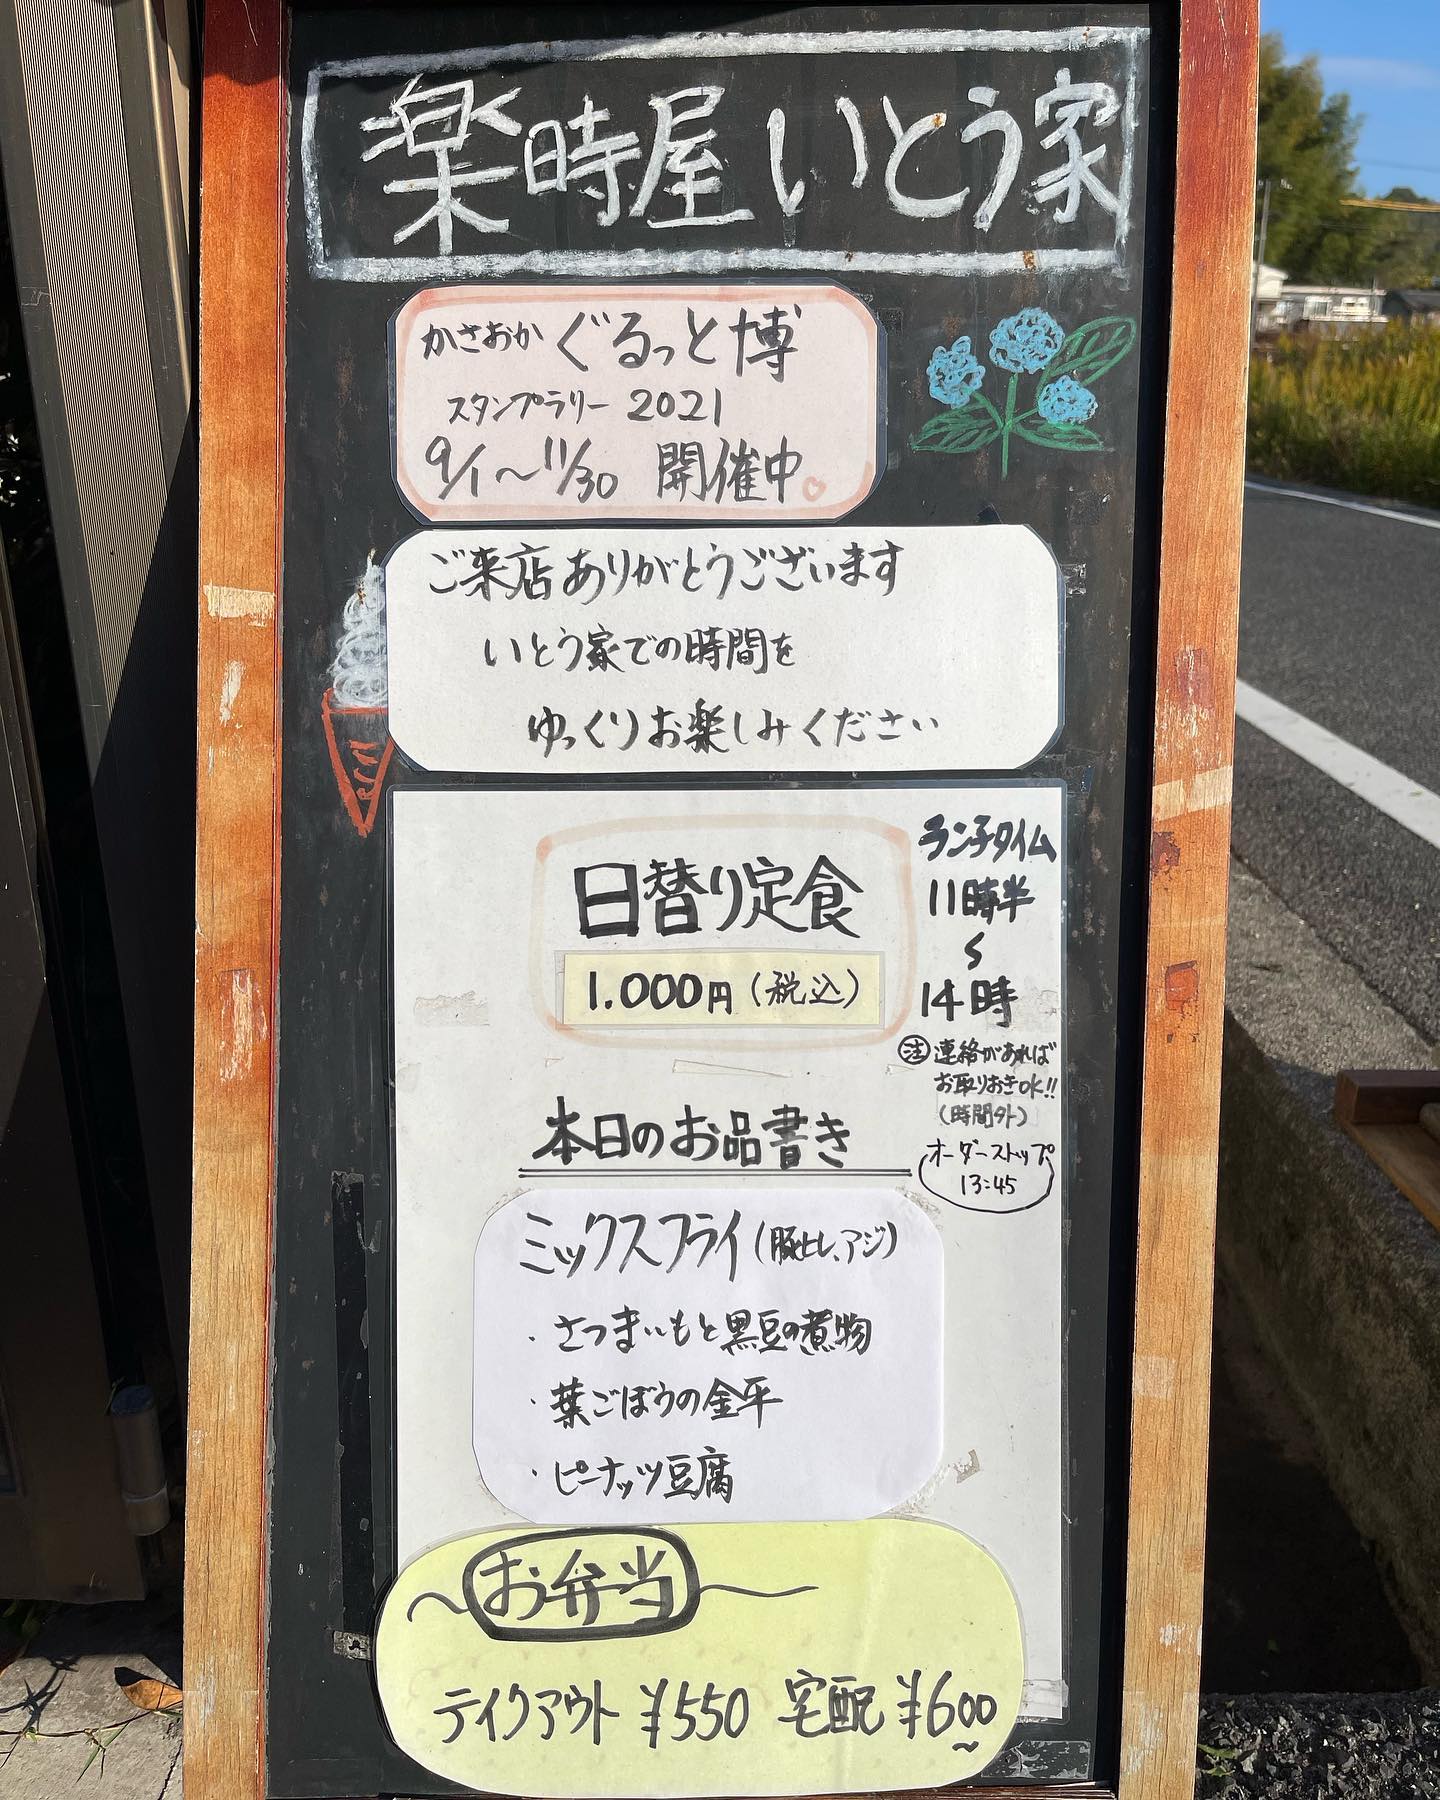 楽時屋 いとう家
かさおか ぐるっと博
スタンプラリー 2021
9/1〜11/30 開催中。
ご来店ありがとうございます
いとう家での時間を
ゆっくりお楽しみください
日替り定食
1.000円(税込)
ランチタイム
11時半
〜
14時
注 連絡があれば
お取りおきOK!!
(時間外)
オーダーストップ
13:45
本日のお品書き
ミックスフライ(豚ヒレ、アジ)
・さつまいもと黒豆の煮物
・葉ごぼうの金平
・ピーナッツ豆腐
〜お弁当〜
テイクアウト ¥550 宅配 ¥600〜